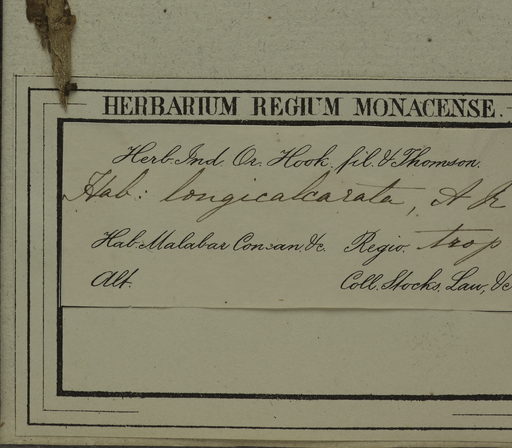 HERBARIUM REGIUM MONACENSE.
Herb. Ind. Or. Hook. fil. & Thomson.
Hab: longicalcarata, A
Hab. Malabar Concan, &c. Regio. trop
Alt. Coll. Stocks, Law, &c